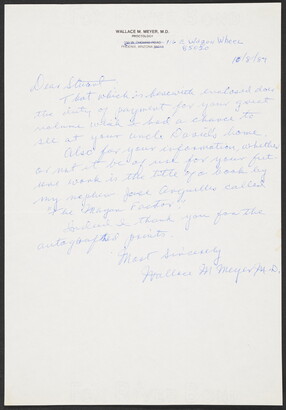 WALLACE M. MEYER, M.D.
PROCTOLOGY
Wagon Wheel
PHOENIX, ARIZONA 85020
10/8/87
Dear Stuart
That which is herewith enclosed does
the duty of payment for your great
volume which I had a chance to
see at your uncle David's home.
Also for your information, whether
or not it be of use for your fut
ure work is the title of a book by
my nephew José Arguelles called
"The Mayan Factor".
I thank you for the
autographed points.
Most Sincerely
Wallace M Meyer, M.D.